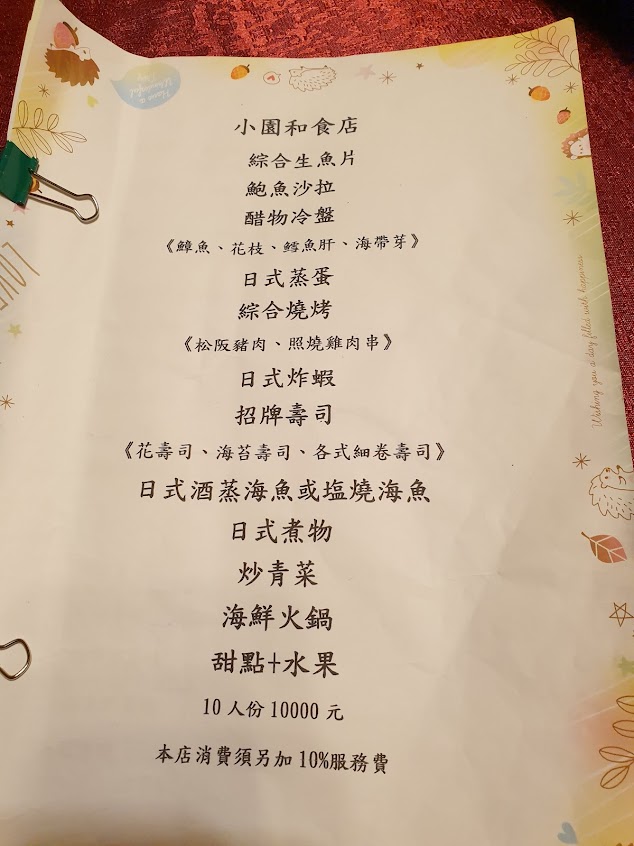 Have a
Wonderful
Day
小園和食店
綜合生魚片
鮑魚沙拉
醋物冷盤
《鱆魚、花枝、鱈魚肝、海帶芽》
日式蒸蛋
綜合燒烤
《松阪豬肉、照燒雞肉串》
日式炸蝦
招牌壽司
《花壽司、海苔壽司、各式細卷壽司》
日式酒蒸海魚或塩燒海魚
日式煮物
炒青菜
海鮮火鍋
甜點+水果
10 人份 10000 元
本店消費須另加 10%服務費
LOVE
Wishing you a day filled with happiness